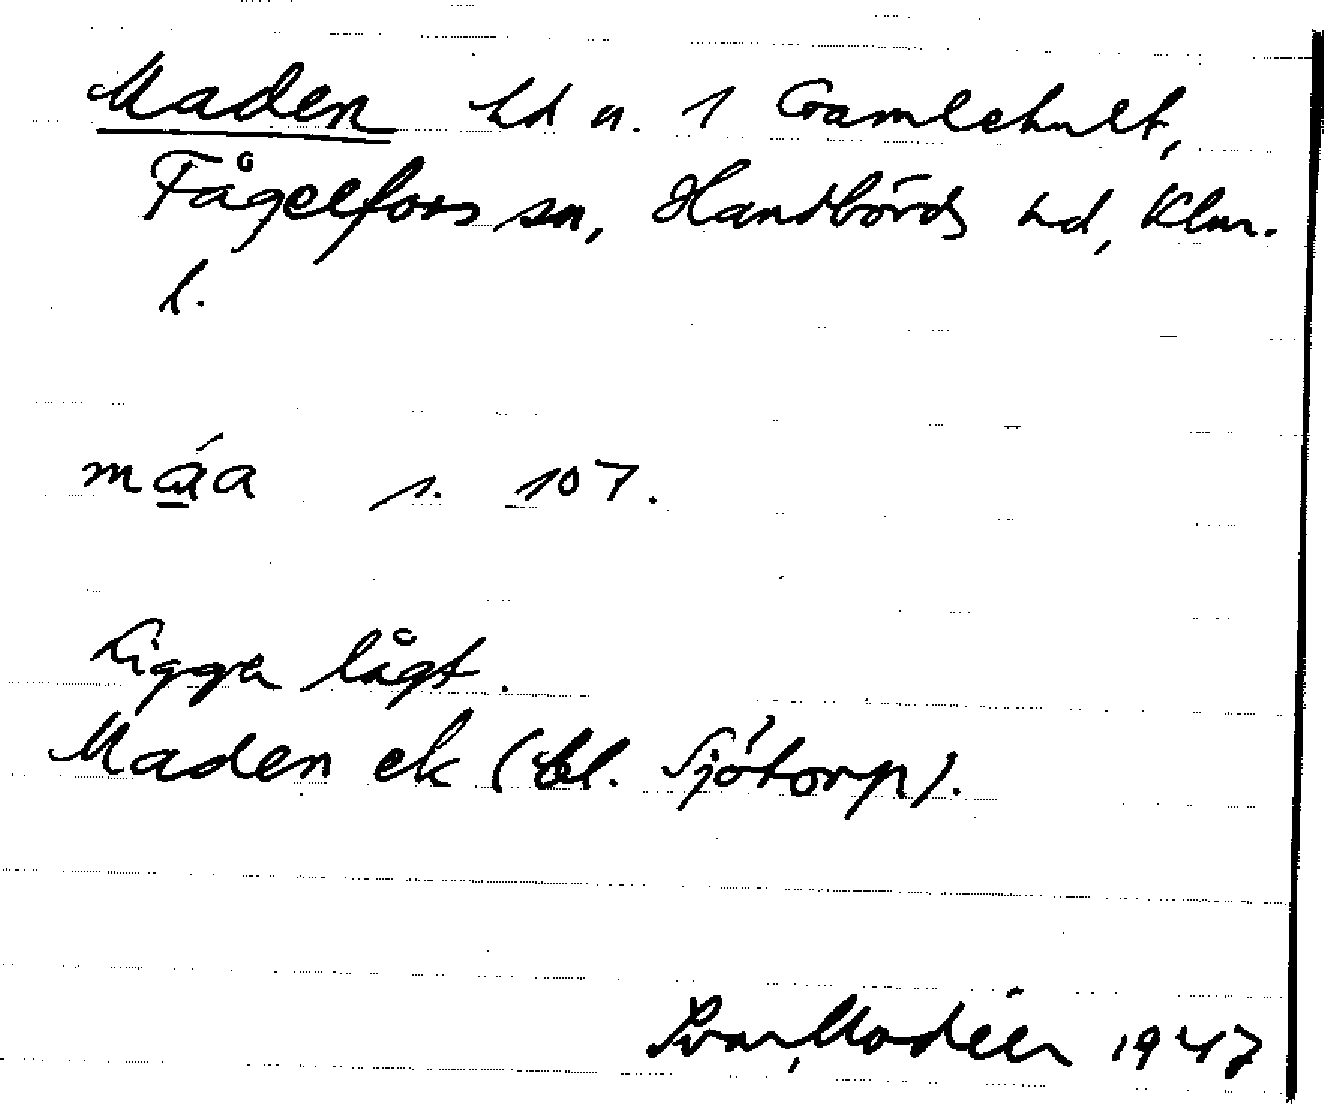 Maden hd n. 1 Gamlehult,
Fågelfors sn, Handbörds hd, Klm.
l.
máa s. 107.
Ligger lågt.
Maden ek (bl. Sjötorp).
Ivar Modéer 1947